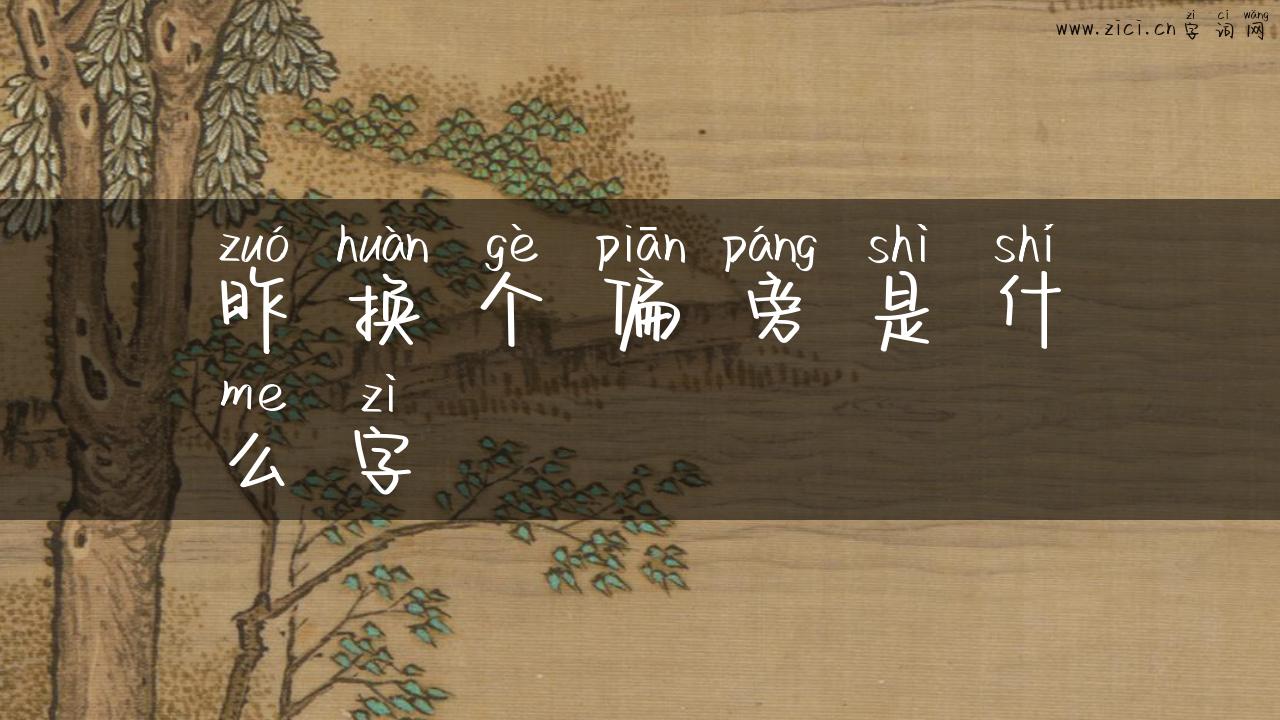 zì cí wǎng
www.zici.cn 字词网
zuó huàn gè piān páng shì shí
昨换个偏旁是什
me zì
么字